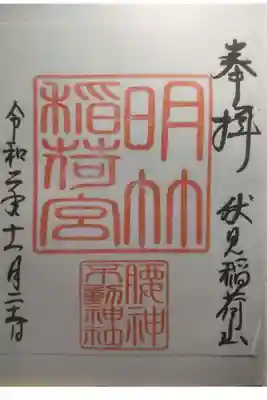 奉拝
伏見稲荷山
明竹
稲荷宮
腰神
不動神社
令和 十一月二十 日